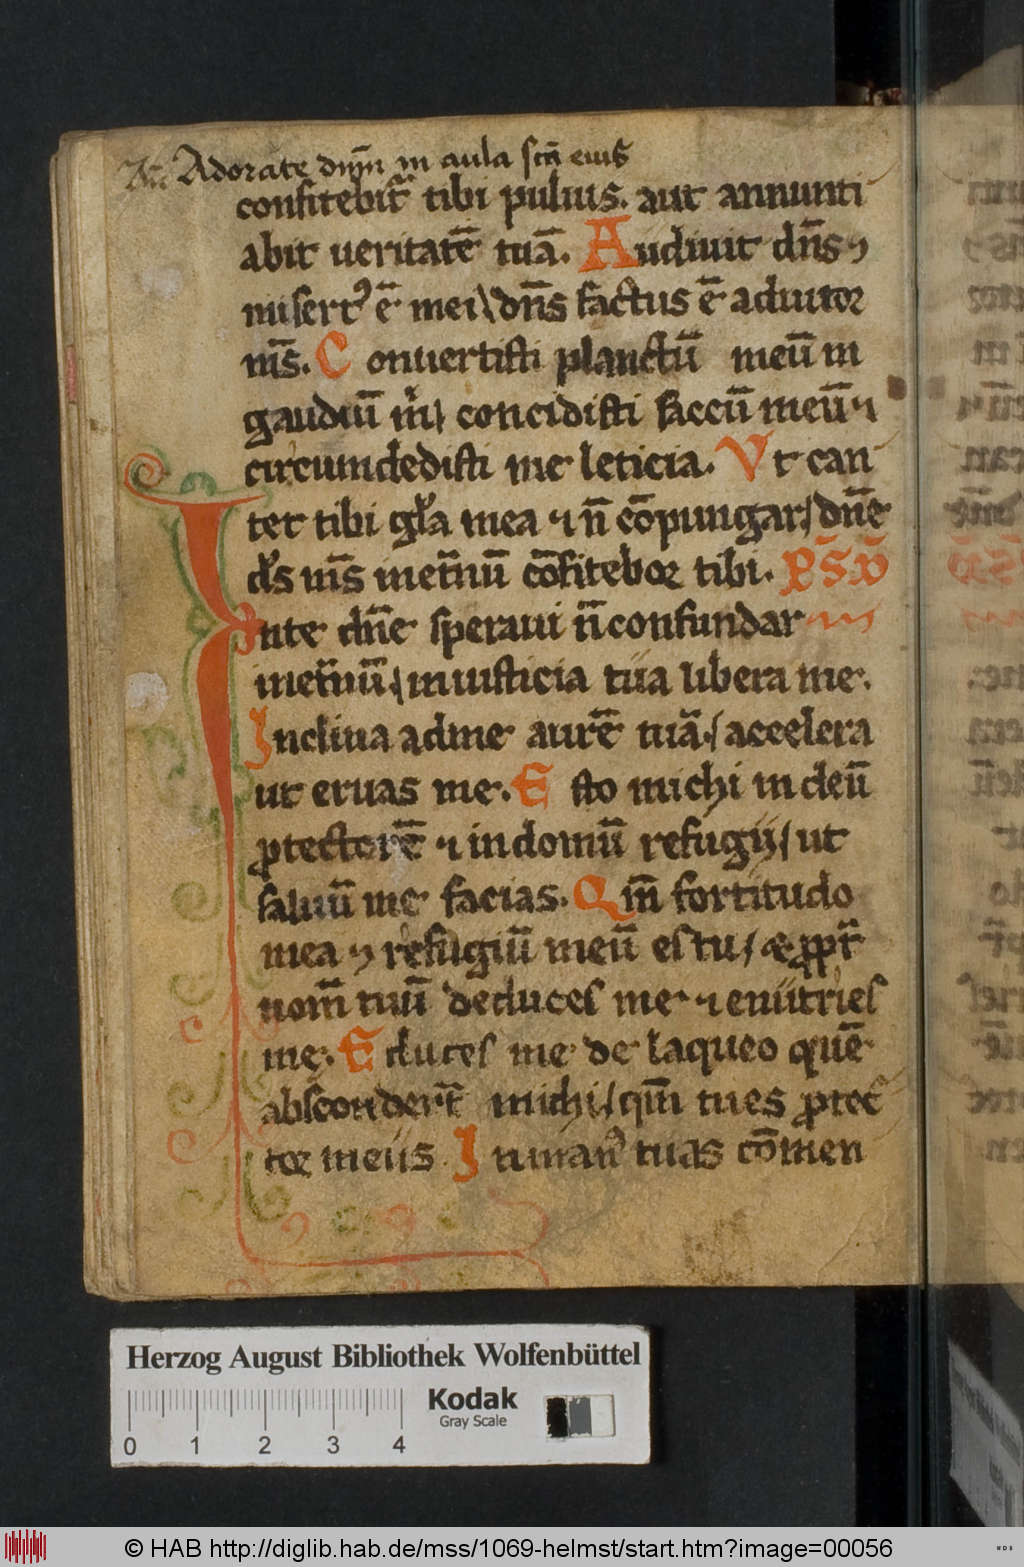 An Adorate dnm̄ in aula scā eius
confitebit᷑ tibi puluis. aut annunti
abit ueritatē tuā. Audiuit dn̄s ⁊
misert᷒ ē mei / dn̄s factus ē adiutor
m̄s. Conuertisti planctū meū in
gaudiū m̄ / concidisti saccū meū ⁊
circumdedisti me leticia. Vt can
tet tibi gl̄a mea ⁊ n̄ cōpungar / dn̄e
ds̄ m̄s inet̄nū cōfitebor tibi. PS. XXX
Inte dn̄e speraui n̄ confundar
inet̄nū / iniusticia tua libera me.
Inclina adme aurē tuā. / accelera
ut eruas me. Esto michi in deū
ꝓtectorē ⁊ in domū refugij / ut
saluū me facias. Qm̄ fortitudo
mea ⁊ refugiū meū es tu / & ꝓpt̄
nom̄ tuū deduces me ⁊ enutries
me. Educes me de laqueo quē
absconder̄t michi / qm̄ tu es ꝓtec
tor meus. In man᷒ tuas cōmen
Herzog August Bibliothek Wolfenbüttel
Kodak
Gray Scale
0 1 2 3 4
© HAB http://diglib.hab.de/mss/1069-helmst/start.htm?image=00056